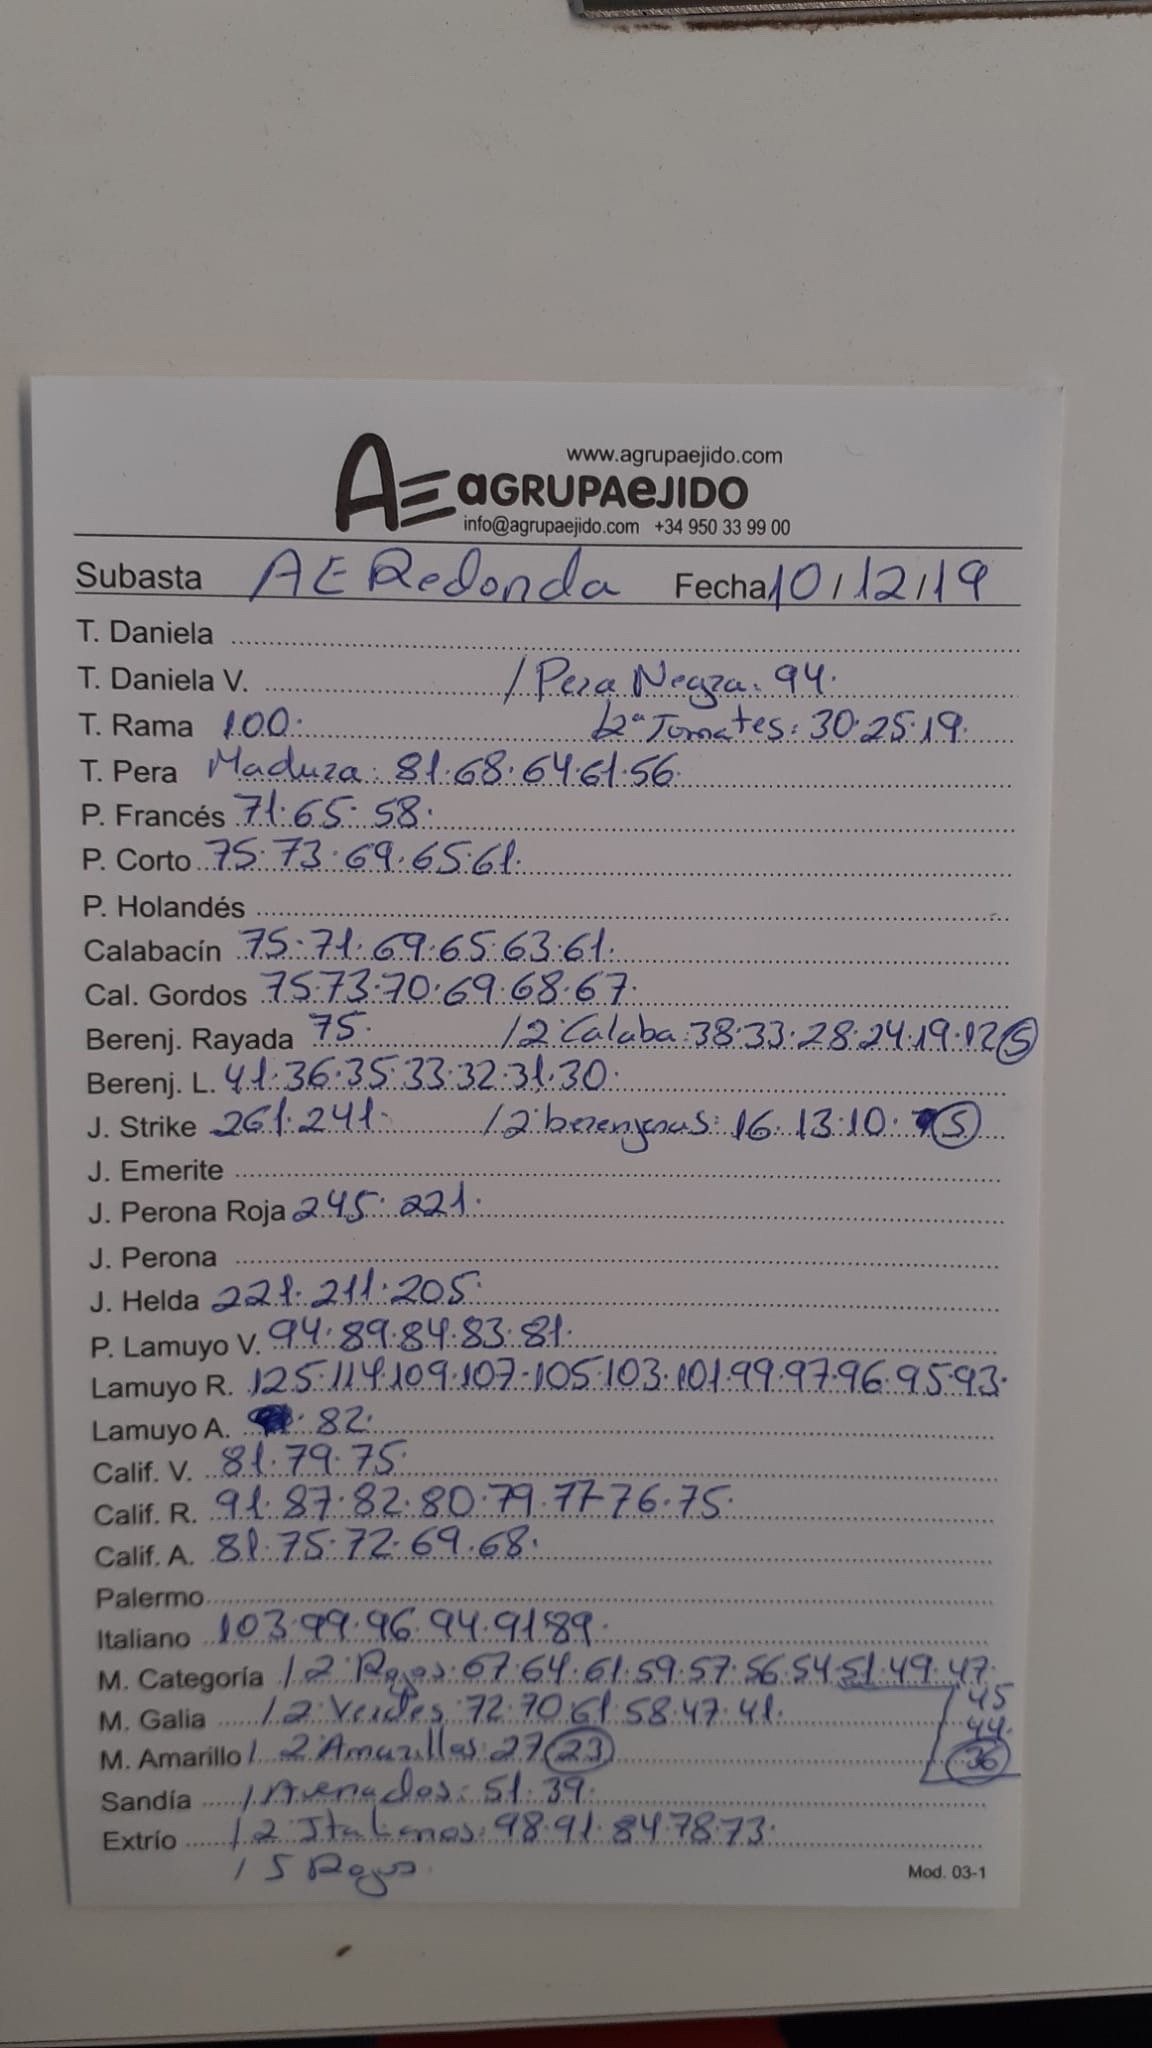 www.agrupaejido.com
AE aGRUPAeJIDO
info@agrupaejido.com +34 950 33 99 00
Subasta AE Redonda Fecha 10/12/19
T. Daniela
T. Daniela V. / Pera Negra: 94.
T. Rama 100. /2ª Tomates: 30.25.19.
T. Pera Madura: 81.68.64.61.56.
P. Francés 71.65.58.
P. Corto 75.73.69.65.61.
P. Holandés
Calabacín 75.71.69.65.63.61.
Cal. Gordos 75.73.70.69.68.67.
Berenj. Rayada 75. /2ª Calaba: 38.33.28.24.19.12 5
Berenj. L. 41.36.35.33.32.31.30.
J. Strike 261.241. /2ª berenjenas: 16.13.10. 5
J. Emerite
J. Perona Roja 245.221.
J. Perona
J. Helda 221.211.205.
P. Lamuyo V. 94.89.84.83.81.
Lamuyo R. 125.114.109.107.105.103.101.99.97.96.95.93.
Lamuyo A. 82.
Calif. V. 81.79.75.
Calif. R. 91.87.82.80.79.77.76.75.
Calif. A. 81.75.72.69.68.
Palermo
Italiano 103.99.96.94.91.89.
M. Categoría /2ª Rojos: 67.64.61.59.57.56.54.51.49.47.
45
M. Galia /2ª Verdes: 72.70.61.58.47.41.
44.
M. Amarillo /2ª Amarillos: 27 23
36
Sandía /Asenados: 51.39.
Extrío /2ª Italianos: 98.91.84.78.73.
/5 Rojos.
Mod. 03-1